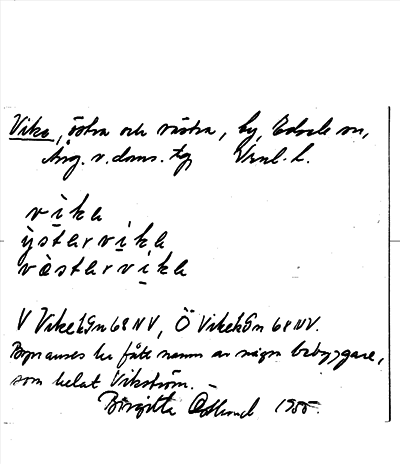 Vike, östra och västra, by, Edsele sn,
Ång. v. doms. tg Vrnl. l.
vi̱ka
ÿstarvi̱ka
västarvi̱ka
V Vike k 9n 68 NV, Ö Vike k 9n 68 NV.
Byn anses ha fått namn av någon bebyggare,
som hetat Vikström.
Birgitta Östlund 1955.